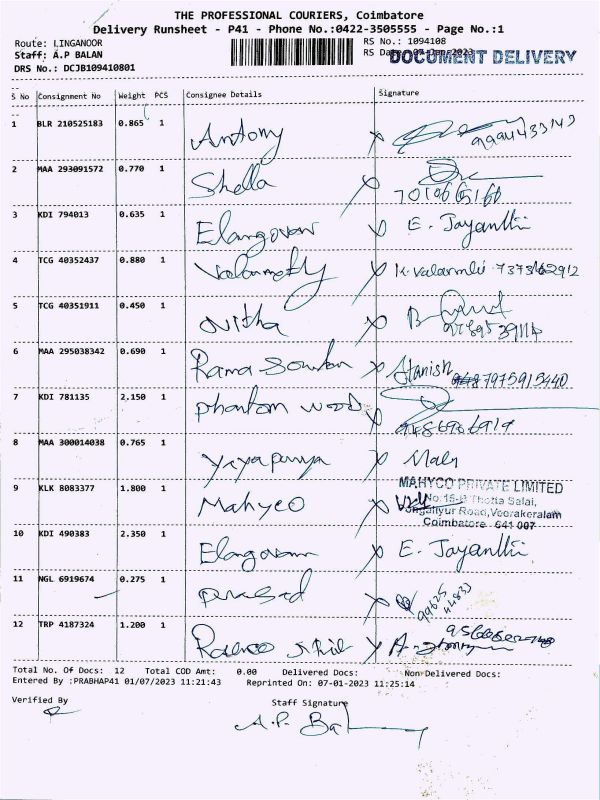 THE PROFESSIONAL COURIERS, Coimbatore
Delivery Runsheet - P41 - Phone No.:0422-3505555 - Page No.:1
Route: LINGANOOR
RS No.: 1094108
Staff: A.P BALAN
RS Date: 07-Jan-2023
DOCUMENT DELIVERY
DRS No.: DCJB109410801
S No Consignment No Weight PCS Consignee Details Signature
1 BLR 210525183 0.865 1 Antony 9994433143
2 MAA 293091572 0.770 1 Shella
3 KDI 794013 0.635 1 Elangovan E. Jayanthi
4 TCG 40352437 0.880 1 K. Valarmathi 7373462912
5 TCG 40351911 0.450 1
6 MAA 295038342 0.690 1 Rama 7975915440
7 KDI 781135 2,150 1 Phantom wood 9486906919
8 MAA 300014038 0.765 1
9 KLK 8083377 1.800 1 Mahyco
MAHYCO PRIVATE LIMITED
Thotta Salai,
Road, Voorakeralam
Coimbatore 641 007
10 KDI 490383 2,350 1 Elangovan E. Jayanthi
11 NGL 6919674 0.275 1 Prasad
12 TRP 4187324 1.200 1
Total No. Of Docs: 12 Total COD Amt: 0.00 Delivered Docs: Non-Delivered Docs:
Entered By :PRABHAP41 01/07/2023 11:21:43 Reprinted On: 07-01-2023 11:25:14
Verified By Staff Signature
A.P. Bal